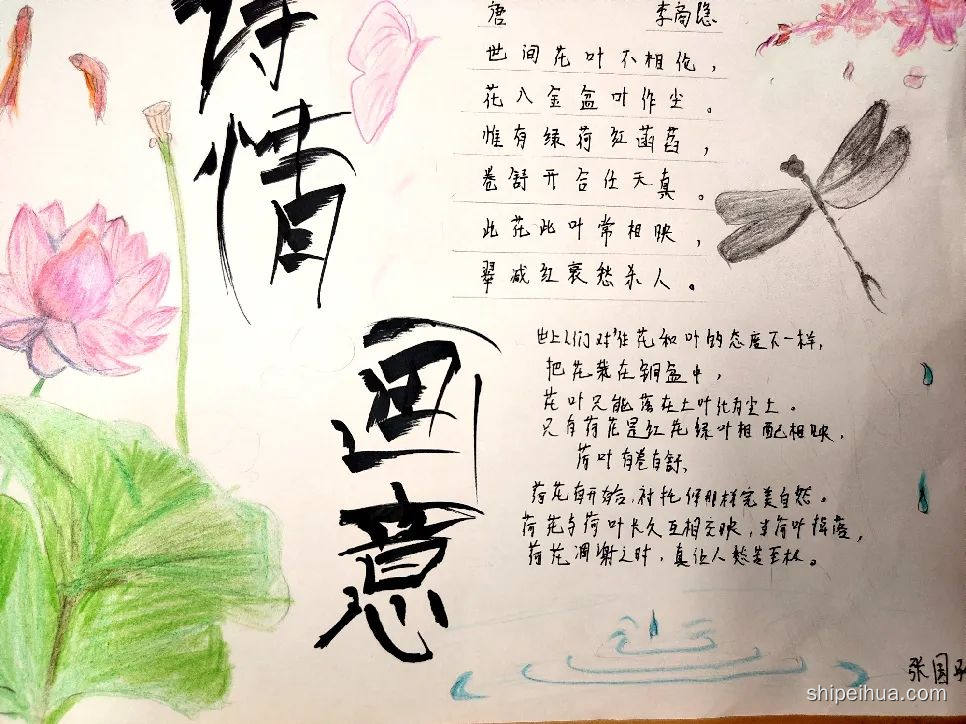 诗情
画意
唐 李商隐
世间花叶不相伦，
花入金盆叶作尘。
惟有绿荷红菡萏，
卷舒开合任天真。
此花此叶常相映，
翠减红衰愁杀人。
世上人们对待花和叶的态度不一样，
把花栽在铜盆中，
花叶只能落在土叶化为尘土。
只有荷花是红花绿叶相配相映，
荷叶有卷有舒，
荷花有开有合，衬托得那样完美自然。
荷花与荷叶长久互相交映，当荷叶掉落，
荷花凋谢之时，真让人愁苦至极。
张国
shipeihua.com